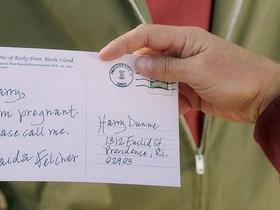 ries of Rocky Point, Rhode Island
arry,
m pregnant.
ase call me.
aida Felcher
Harry Dunne
1312 Euclid St.
Providence, R.I.
02903